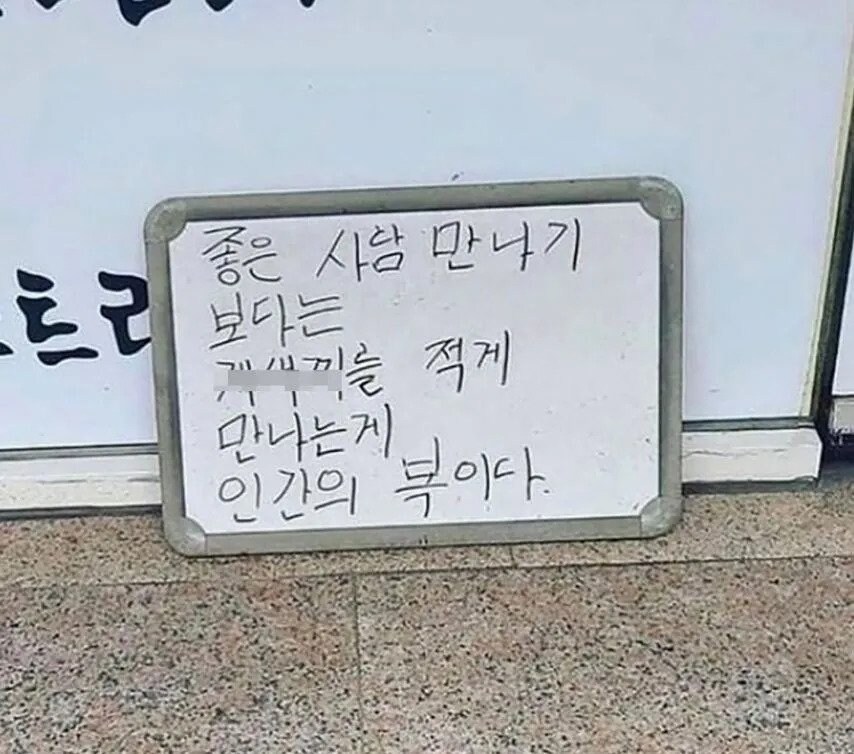 트리
좋은 사람 만나기
보다는
를 적게
만나는게
인간의 복이다.